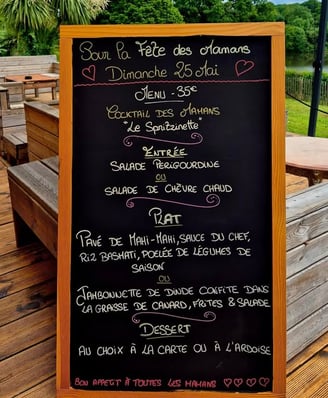 Pour la Fête des Mamans
Dimanche 25 Mai
Menu - 35€
Cocktail des Mamans
"Le Sprizzinette"
Entrée
Salade Périgourdine
ou
Salade de Chèvre Chaud
Plat
Pavé de Mahi-Mahi, sauce du chef,
Riz basmati, poelée de légumes de
saison
ou
Jambonnette de dinde confite dans
la graisse de canard, frites & salade
Dessert
Au choix à la carte ou à l'ardoise
Bon appetit à toutes les mamans